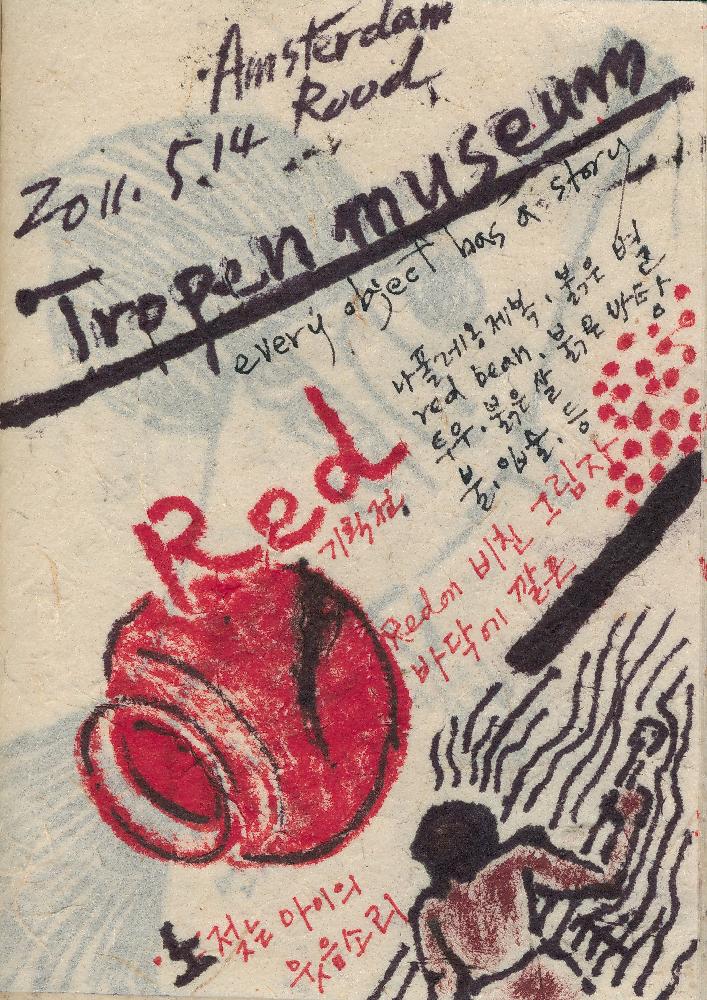 Amsterdam
Rood
2011. 5.14
Tropen museum
every object has a story
나폴레옹제복, 붉은 벽돌
red bean, 붉은 바탕
두우, 붉은 쌀
불, 입술, 등
Red
기획전
Red에 비친 그림자
바닥에 깔은
노 젖는 아이의
웃음소리